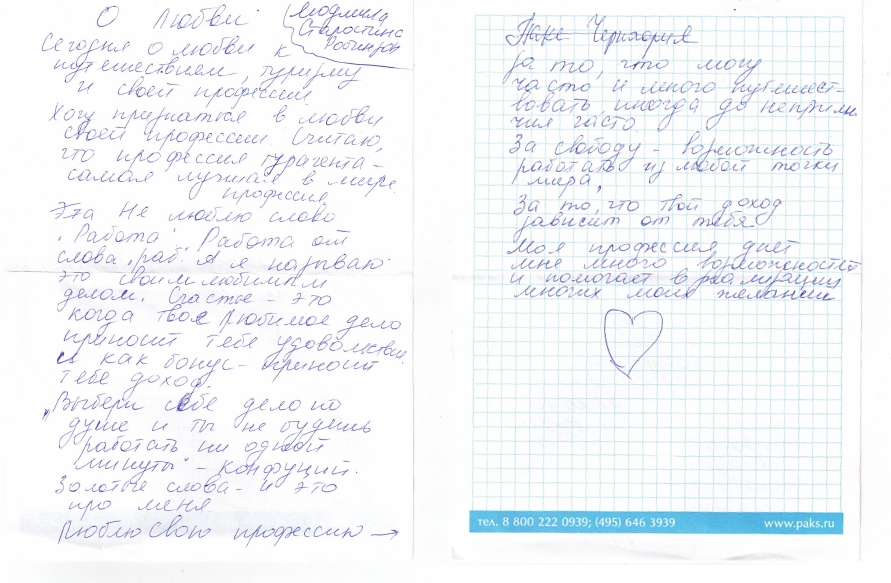 О Любви
Людмила
Старостина
Робинзон
Сегодня о любви к
путешествиям, туризму
и своей профессии
Хочу признаться в любви
своей профессии. Считаю,
что профессия турагента -
самая лучшая в мире.
профессия
Эта Не люблю слово
"Работа". Работа от
слова "раб". А я называю
это своим любимым
делом. Счастье - это
когда твое любимое дело
приносит тебе удовольствие.
и как бонус - приносит
тебе доход.
"Выбери себе дело по
душе и ты не будешь
работать ни одной
минуты" - Конфуций.
Золотые слова - и это
про меня.
Люблю свою профессию →
Пакс Черногория
за то, что могу
часто и много путешест-
вовать иногда до неприли-
чия часто.
За свободу - возможность
работать из любой точки
мира,
За то, что твой доход
зависит от тебя.
Моя профессия дает
мне много возможностей
и помогает в реализации
многих моих желаний
тел. 8 800 222 0939; (495) 646 3939
www.paks.ru